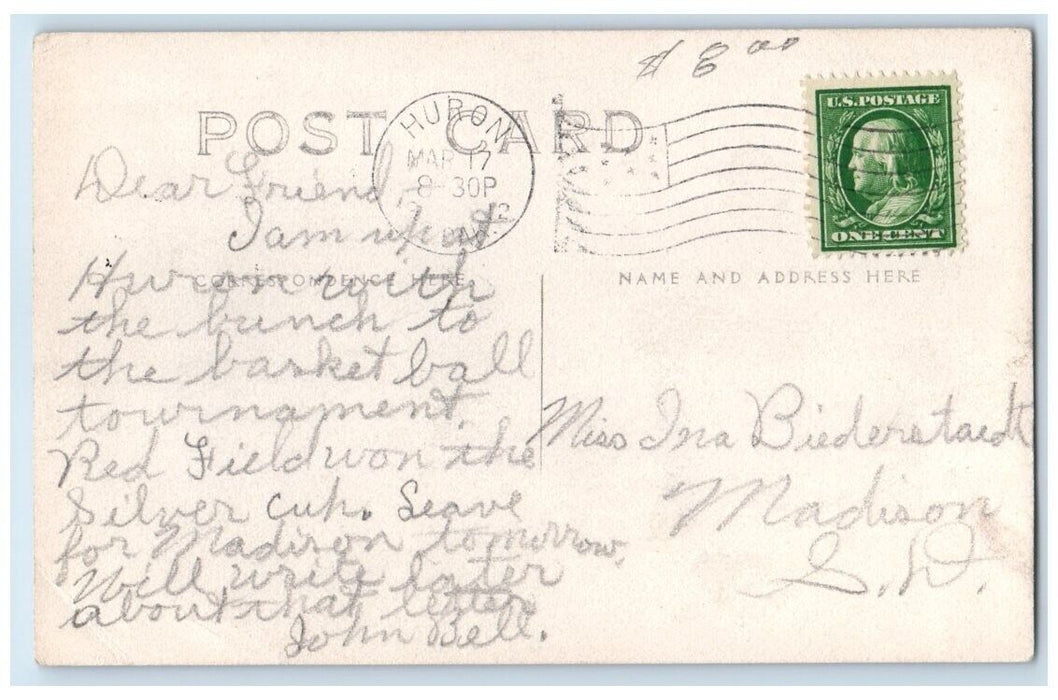 $ 8.00
U.S. POSTAGE
ONE CENT
POST CARD
HURON
MAR 17
8-30P
CORRESPONDENCE HERE
NAME AND ADDRESS HERE
Dear Friend,
I am up at
Huron with
the bunch to
the basket ball
tournament.
Red Field won the
Silver cup. Leave
for Madison tomorrow.
Will write later
about that letter
John Bell.
Miss Ina Biederstaedt
Madison
S.D.